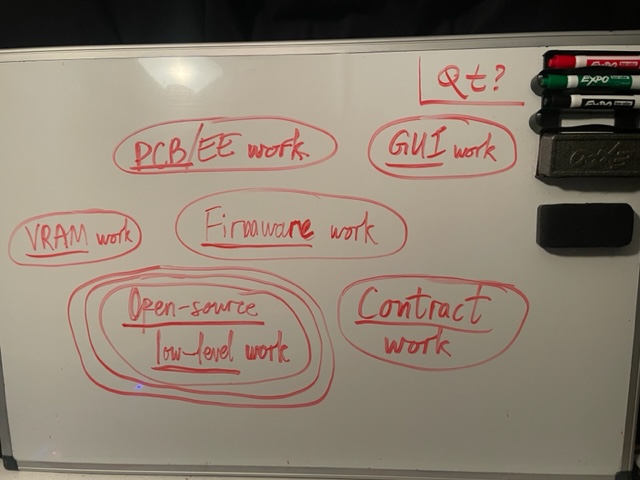 Qt?
PCB/EE work
GUI work
VRAM work
Firmware work
Open-source
low-level work
Contract
work
EXPO
EXPO
EXPO